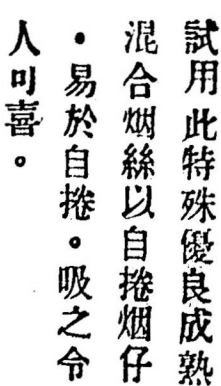 試用此特殊優良成熟
混合烟絲以自捲烟仔
・易於自捲。吸之令
人可喜。